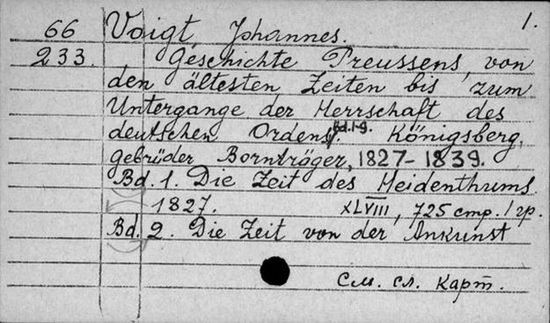 1.
66 Voigt, Johannes.
233. Geschichte Preussens, von
den ältesten Zeiten bis zum
Untergange der Herrschaft des
deutschen Ordens. Bd.1-9. Königsberg,
gebrüder Bornträger, 1827-1839.
Bd. 1. Die Zeit des Heidenthums
1827. XLVIII, 725 стр. 1 гр.
Bd. 2. Die Zeit von der Ankunst
См. сл. карт.